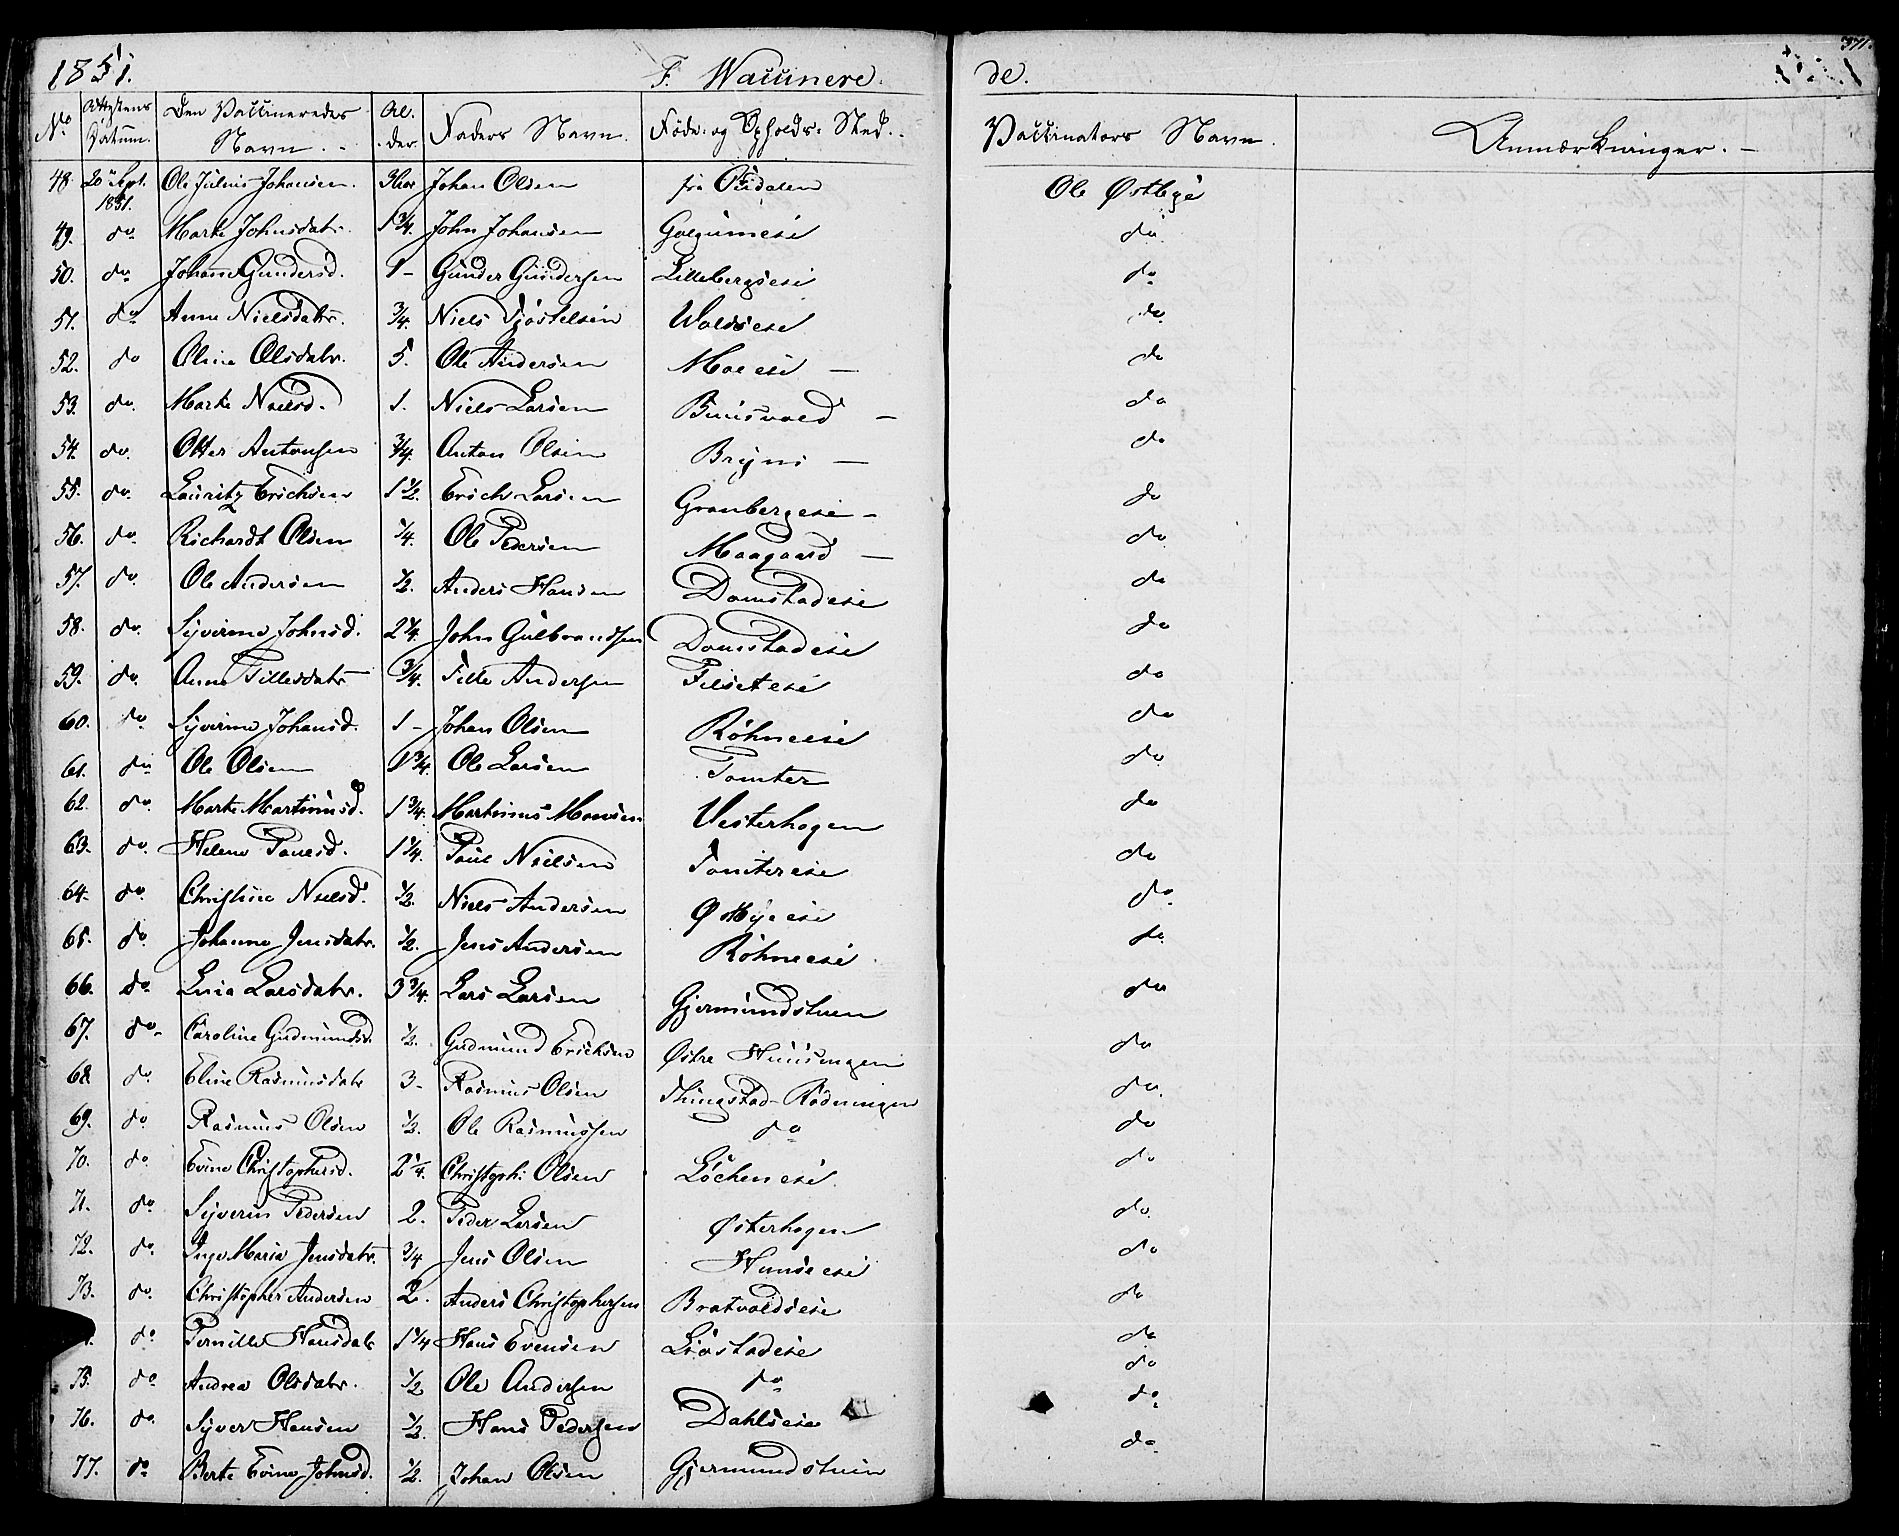 1851. F. Waccinere. de. 371.
No Attestens Datum. Den Vaccineredes Navn. Al-der. Faders Navn. Føde- og Opholds-Sted. Vaccinators Navn. Anmærkninger.
48. 20 Sept. 1851. Ole Julius Johansen. Johan Olsen fra Ole Østbye
49. do Marte Johnsdatr. 1 3/4. John Johansen do
50. do Johane Gundersd. 1 - Gunder Gundersen Lillebergseie do
51. do Anne Nielsdatr. 3/4. Niels Woldseie do
52. do Oline Olsdatr. 5. Ole Andersen Moeeie - do
53. do. Marte Nielsd. 1. Niels Larsen Buusvold - do
54. do. Otter Antonsen 3/4. Anton Olsen Bryni - do
55. do. Lauritz Erichsen 1 1/2. Erich Larsen Granbergeie - do
56. do. Richardt Olsen 1/4. Ole Pedersen Moagaard - do
57. do. Ole Andersen 1/2. Anders Hansen Domstadeie do
58. do. Syverine Johnsd. 2 1/4. John Gulbrandsen Domstadeie do
59. do. Anne Tillesdatr 3/4. Tille Andersen Filseteie do
60. do Syverine Johansd. 1 - Johan Olsen Röhneeie do
61. do Ole Olsen 1 3/4. Ole Larsen Tomter do
62. do. Marte Martinusd. 1 3/4. Martinus Monsen Vesterhagen do
63. do. Helene Paulsd. 1 1/4. Paul Nielsen Tomtereie do
64. do. Christine Nielsd. 1/2. Niels Andersen Østbyeeie do.
65. do Johanne Jensdatr. 1/2. Jens Andersen Röhneeie do
66. do Lars​datr. 3 3/4. Lars Larsen Gjermundstuen do
67. do. Caroline Gudmundsd. 1/2. Gudmund Erichsen Østre Huusengen do
68 do. Eline Rasmusdatr 3 - Rasmus Olsen Thingstad-Rödningen do.
69. do Rasmus Olsen 1/2. Ole Rasmussen do do
70. do Evine Christophersd. 2 1/4. Christoph: Olsen Löcheneie do
71. do Syverin Pedersen 2. Peder Larsen Østerhagen do.
72. do. Inge Maria Jensdatr. 3/4 Jens Olsen Hunseeie do
73. do. Christopher Andersen 2. Anders Christophersen Bratvoldseie do
do Pernille Hansdatr 1 1/4 Hans Evensen Liöstadeie do
75. do Andrea Olsdatr. 1/2 Ole Andersen do do
76. do. Syver Hansen 1/2 Hans Pedersen Dahlseie do
77. do Berte Evine Johnsd. 1/2. Johan Olsen Gjermundstuen do